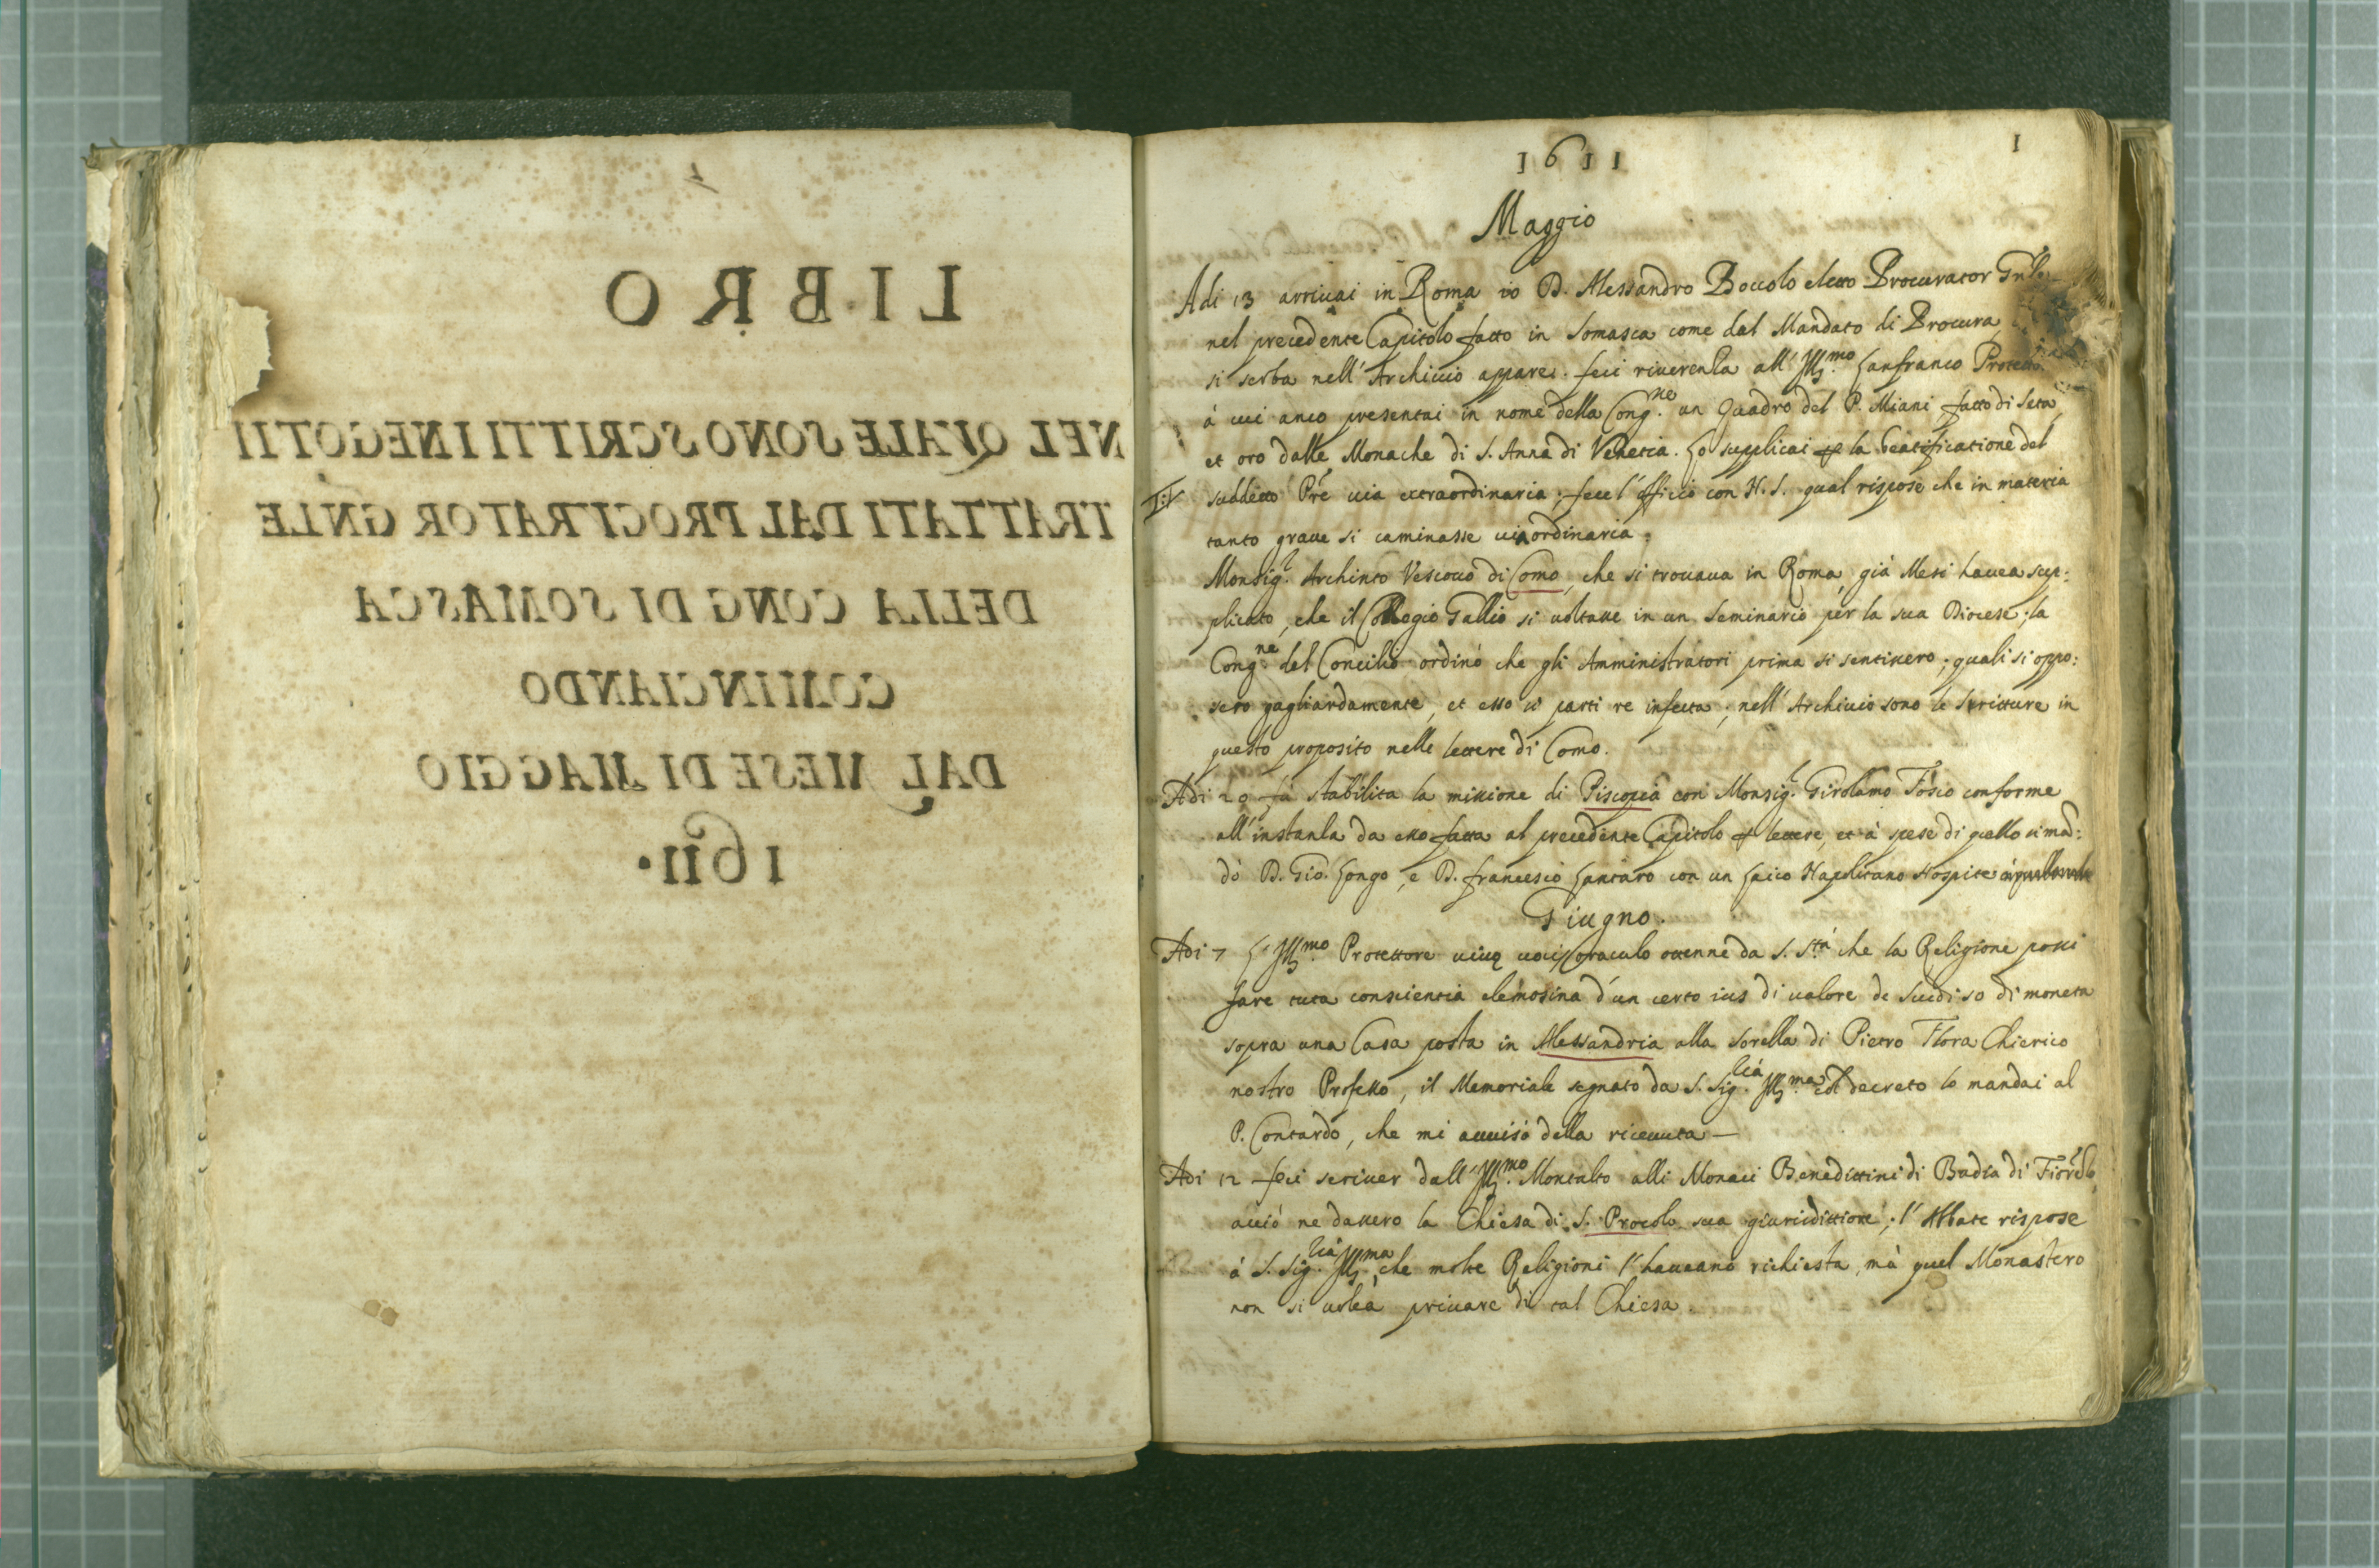 LIBRO
NEL QVALE SONO SCRITTI I NEGOTII
TRATTATI DAL PROCVRATOR GNLE
DELLA CONG DI SOMASCA
COMINCIANDO
DAL MESE DI MAGGIO
1611.
1611
1
Maggio
Adi 13 arriuai in Roma io D. Alessandro Boccolo eletto Procurator Gnle
nel precedente Capitolo fatto in Somasca come dal Mandato di Procura
si serba nell'Archiuio appare. feci riuerenza all'Ill.mo Lanfranco
à cui anco presentai in nome della Cong.ne un Quadro del P. Miani fatto di seta,
et oro dalle Monache di S. Anna di Venetia. Lo supplicai p la beatificatione del
suddetto Pre uia extraordinaria; fece l'officio con N. S. qual rispose che in materia
tanto graue si caminasse uia ordinaria.
Monsig.r Archinto Vescouo di Como, che si trouaua in Roma già Mesi hauea sup:
plicato, che il Collegio Gallio si uoltasse in un Seminario per la sua Diocese; la
Cong.ne del Concilio ordinò che gli Amministratori prima si sentissero; quali si oppo:
sero gagliardamente, et esso si partì re infecta; nell'Archiuio sono le scritture in
questo proposito nelle lettere di Como.
Adi 20 fù stabilita la missione di Piscopia con Monsig.r Girolamo conforme
all'instanza da esso fatta al precedente Capitolo p lettere, et à spese di quello si mã:
dò D. Gio. Longo, e D. francesco Cantaro con un Laico Napolitano Hospite
Giugno.
Adi 7 L'Ill.mo Protettore uiuę uocis oraculo ottenne da S. S.tà che la Religione possi
fare tuta conscientia elemosina d'un certo ius di ualore de scudi 50 di moneta
sopra una Casa posta in Alessandria alla sorella di Pietro Flora Chierico
nostro Professo, il Memoriale segnato da S. Sig.ria Ill.ma col decreto lo mandai al
P. Contardo, che mi auuisò della riceuuta —
Adi 12 feci scriuer dall'Ill.mo Montalto alli Monaci Benedittini di Badia di
acciò ne dassero la Chiesa di S. Procolo sua giuridittione; l'Abbate rispose
à S. Sig.ria Ill.ma, che molte Religioni l'haueano richiesta, mà quel Monastero
non si uolea priuare di tal Chiesa.